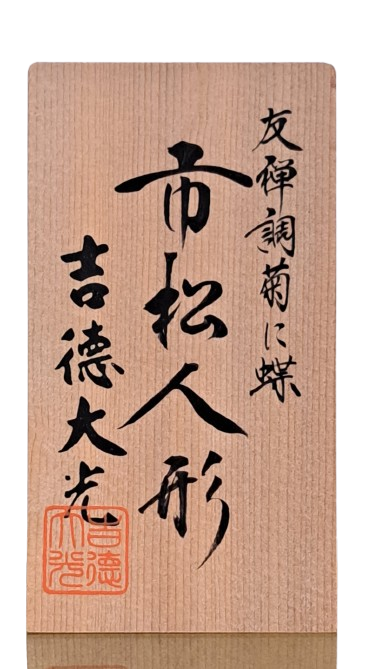 友禅調菊に蝶
市松人形
吉徳大光
吉徳大光